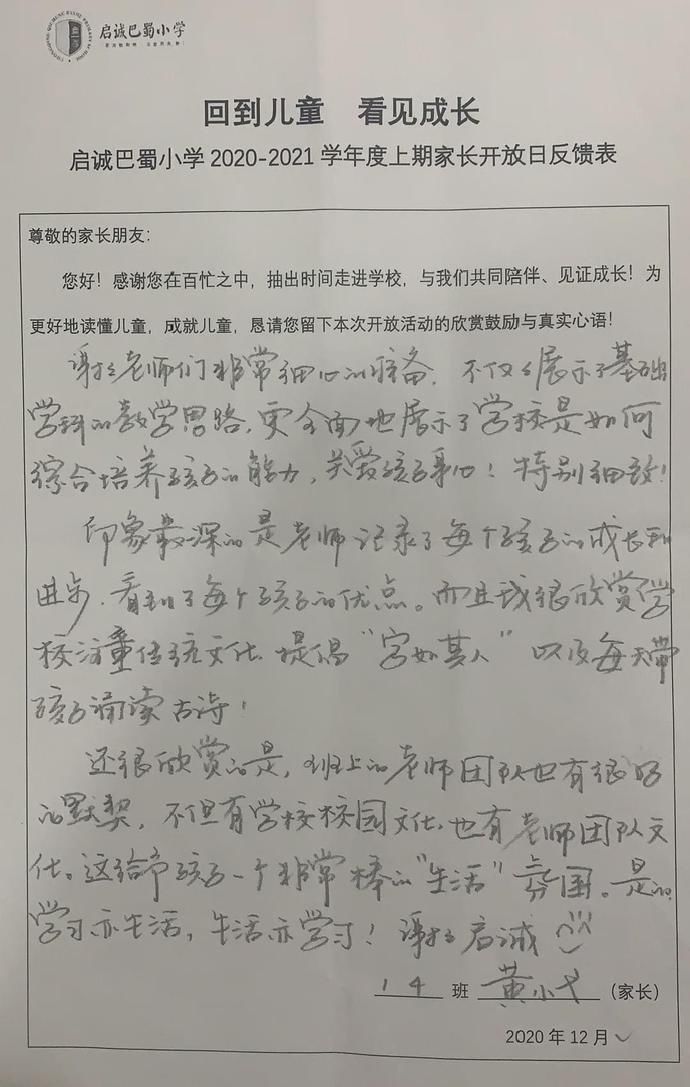 启诚巴蜀小学
回到儿童 看见成长
启诚巴蜀小学 2020-2021 学年度上期家长开放日反馈表
尊敬的家长朋友：
您好！感谢您在百忙之中，抽出时间走进学校，与我们共同陪伴、见证成长！为
更好地读懂儿童，成就儿童，恳请您留下本次开放活动的欣赏鼓励与真实心语！
谢谢老师们非常细心的准备，不仅仅展示了基础
学科的教学思路，更全面地展示了学校是如何
综合培养孩子的能力，关爱孩子身心！特别细致！
印象最深的是老师记录了每个孩子的成长和
进步，看到了每个孩子的优点。而且我很欣赏学
校注重传统文化，提倡“字如其人”以及每天带
孩子诵读古诗！
还很欣赏的是，班上的老师团队也有很好
的默契，不但有学校校园文化，也有老师团队文
化。这给予孩子一个非常棒的“生活”氛围。是的，
学习亦生活，生活亦学习！谢谢启诚
14 班 黄小 （家长）
2020 年 12 月